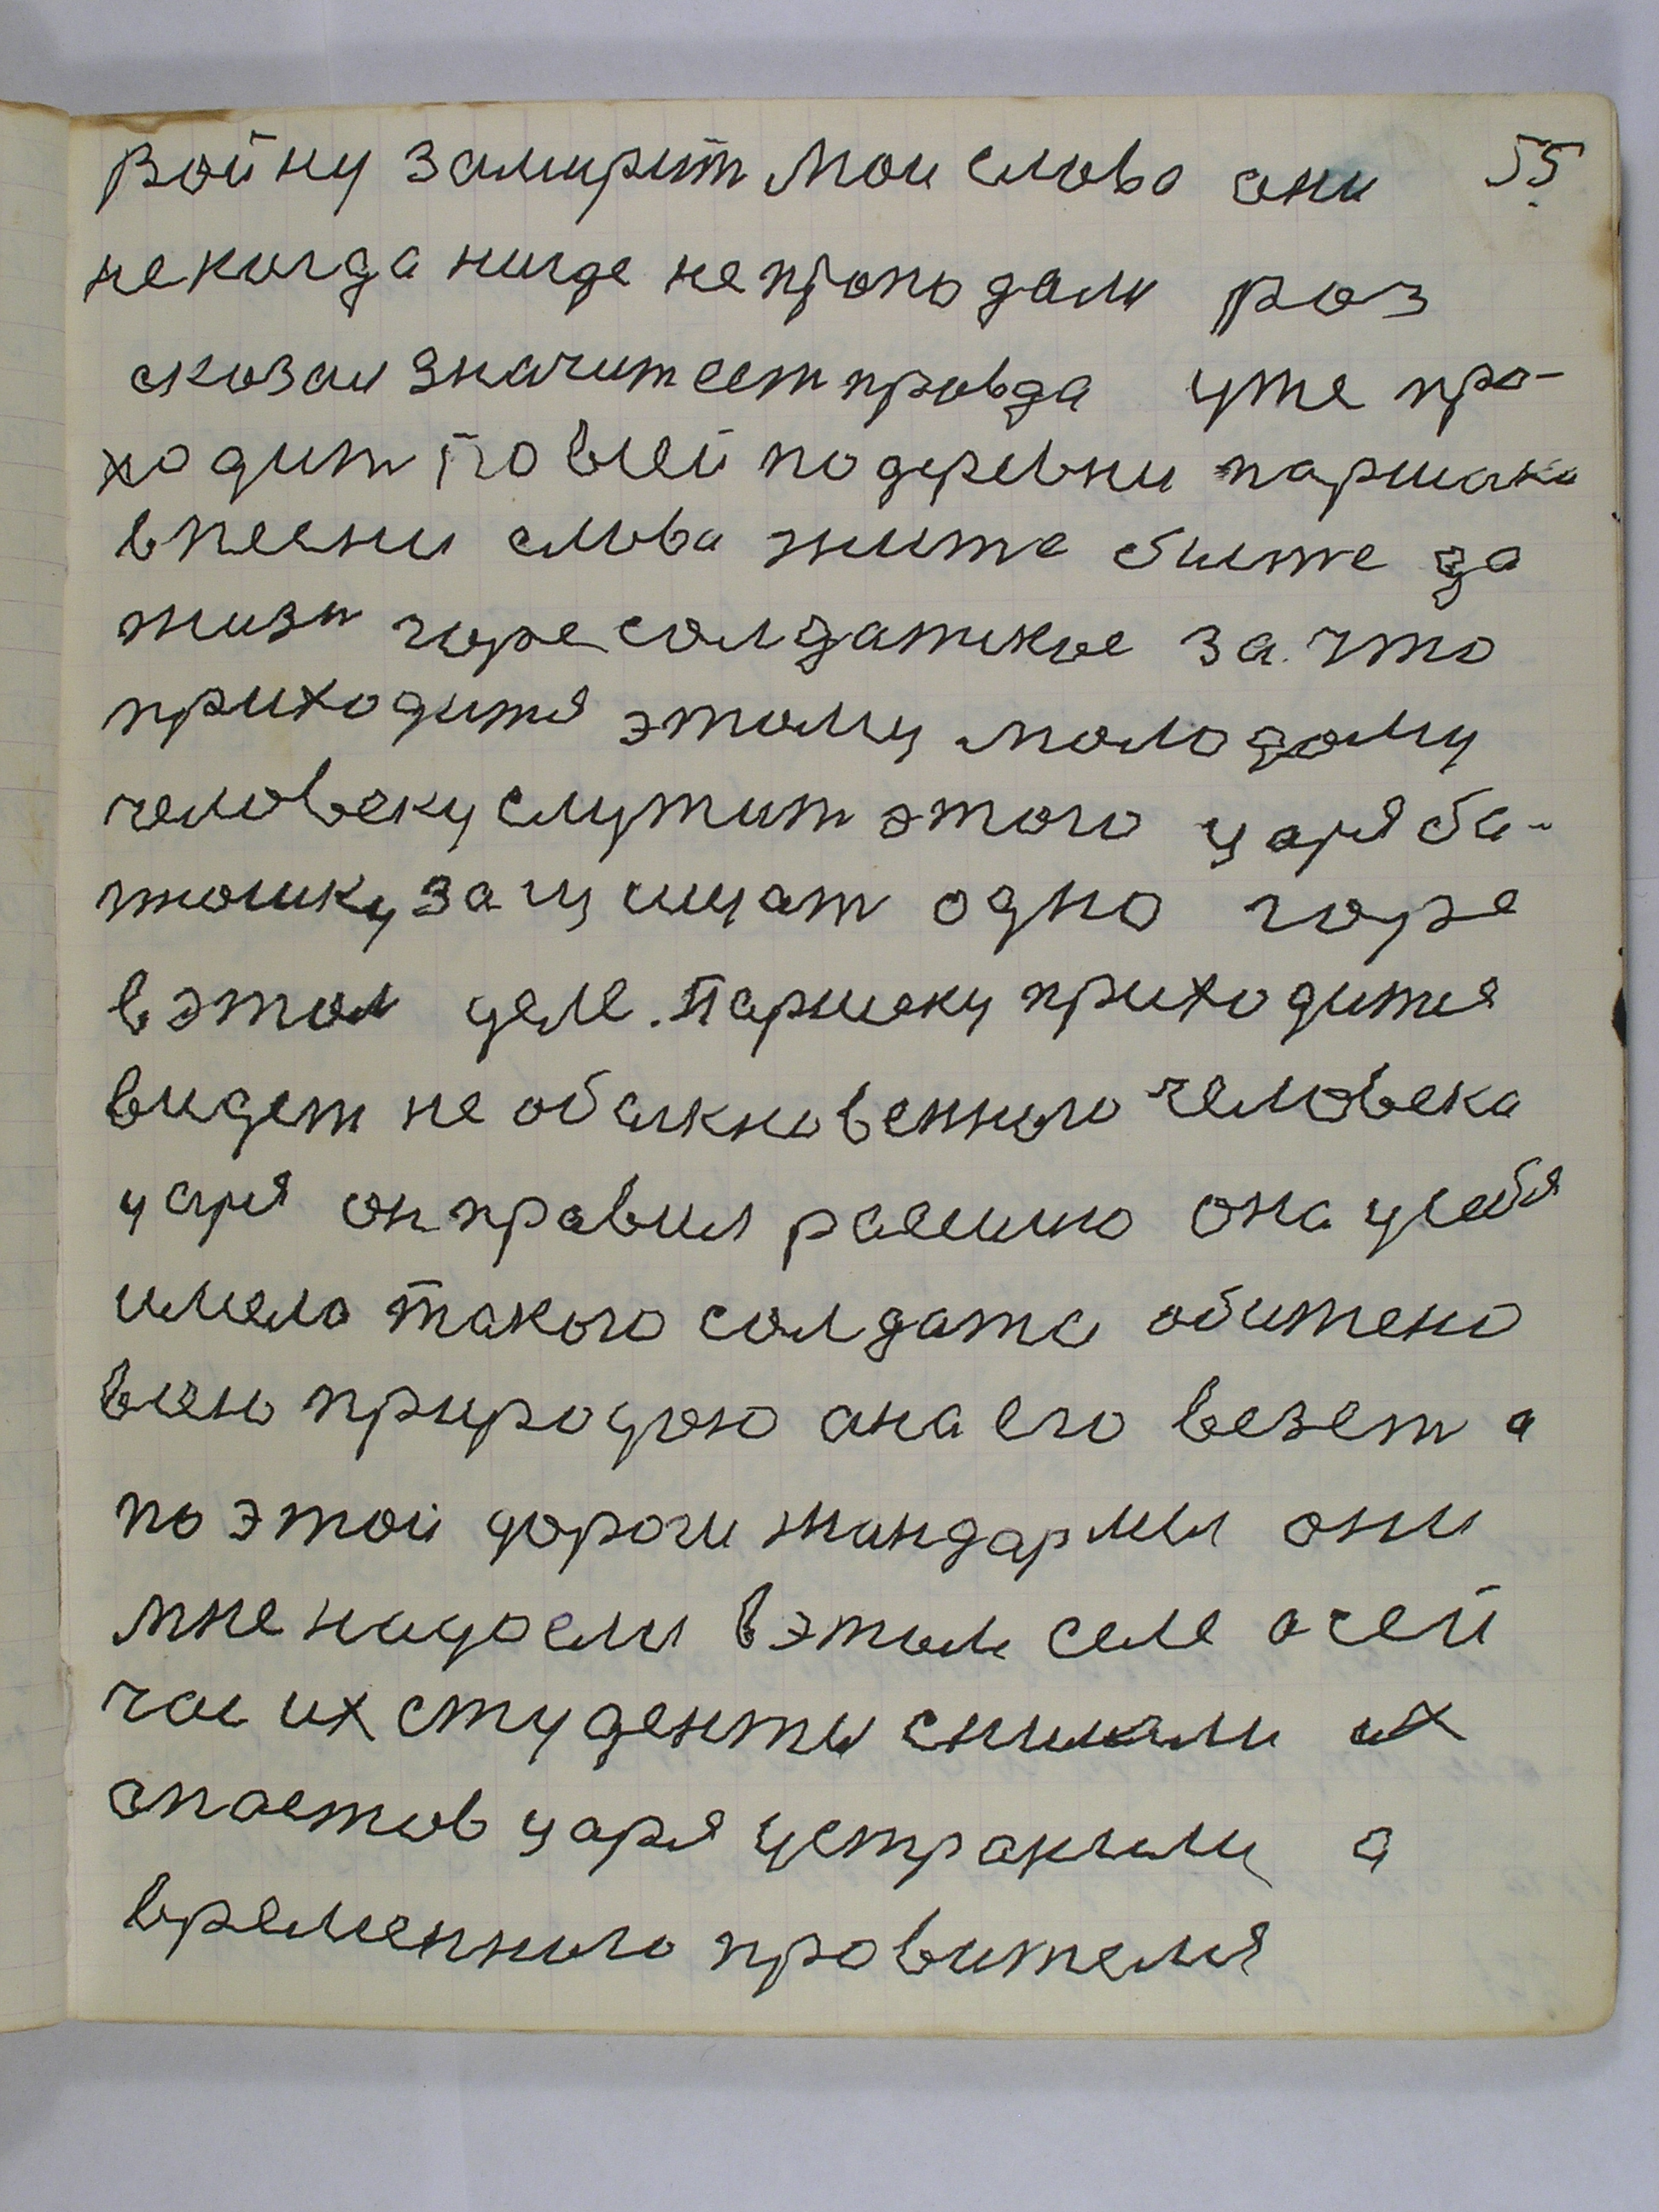 войну замирит Мои слова они 55
некогда нигде непроподали роз
сказал значит ест правда уже про-
ходит по всей по деревни паршака
в песни слова жите бите да
жизн горе солдатское за что
приходится этому молодому
человеку служит этого царя ба-
тюшку защищат одно горе
в этом деле. Паршеку приходится
видет не обакновенного человека
царя он правил расиию она у себя
имела такого солдата обижено
всею природою она его везет а
по этой дороги жандармы они
мне надоели в этом селе а сей
час их студенты снимали их
спастов царя устранили а
временного провителя